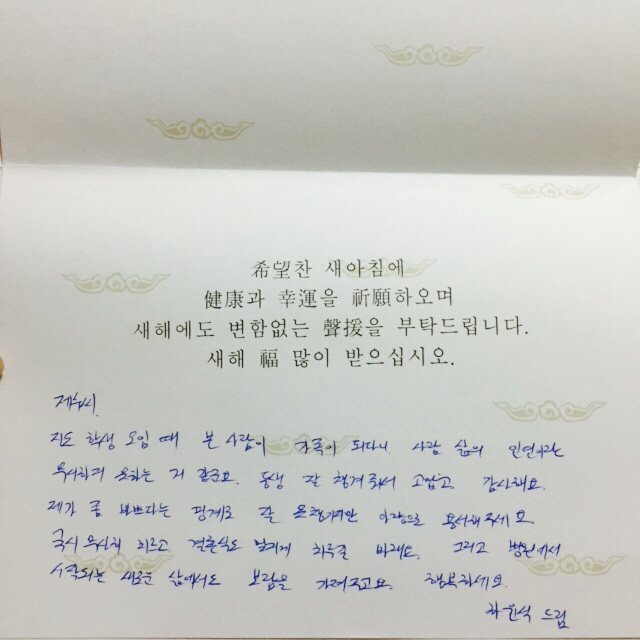 希望찬 새아침에
健康과 幸運을 祈願하오며
새해에도 변함없는 聲援을 부탁드립니다.
새해 福 많이 받으십시오.
제부씨.
지도 학생 모임 때 본 사람이 가족이 되다니 사람 삶의 인연이란
무시하지 못하는 거 같군요. 동생 잘 챙겨줘서 고맙고 감사해요.
제가 좀 바쁘다는 핑계로 잘 못챙기지만 마음으로 용서해주세요
국시 무사히 치르고 결혼식도 멋지게 하루길 바래요. 그리고 병원에서
시작되는 새로운 삶에서도 보람을 가려주고요. 행복하세요.
드림